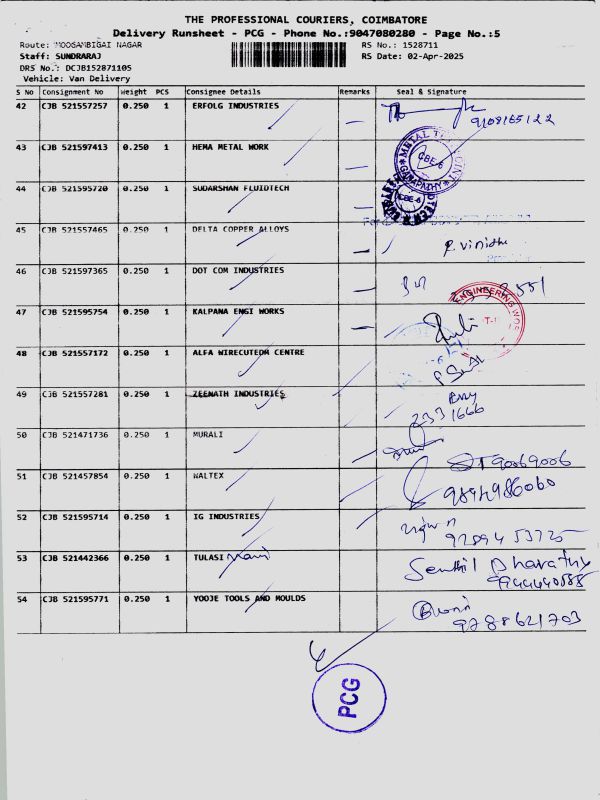 THE PROFESSIONAL COURIERS, COIMBATORE
Delivery Runsheet - PCG - Phone No.:9047080280 - Page No.:5
Route: MOOGAMBIGAI NAGAR RS No.: 1528711
Staff: SUNDRARAJ RS Date: 02-Apr-2025
DRS No.: DCJB152871105
Vehicle: Van Delivery
S No Consignment No Weight PCS Consignee Details Remarks Seal & Signature
42 CJB 521557257 0.250 1 ERFOLG INDUSTRIES
9108165122
43 CJB 521597413 0.250 1 HEMA METAL WORK
METAL CBE-6 GANAPATHY
44 CJB 521595720 0.250 1 SUDARSHAN FLUIDTECH
CBE-6
45 CJB 521557465 0.250 1 DELTA COPPER ALLOYS
R. Vinidhu
46 CJB 521597365 0.250 1 DOT COM INDUSTRIES
47 CJB 521595754 0.250 1 KALPANA ENGI WORKS
ENGINEERING WOR
48 CJB 521557172 0.250 1 ALFA WIRECUTEDM CENTRE
49 CJB 521557281 0.250 1 ZEENATH INDUSTRIES
2331666
50 CJB 521471736 0.250 1 MURALI
51 CJB 521457854 0.250 1 WALTEX
9894986060
52 CJB 521595714 0.250 1 IG INDUSTRIES
53 CJB 521442366 0.250 1 TULASI Mani Senthil Bharathy
9944440588
54 CJB 521595771 0.250 1 YOOJE TOOLS AND MOULDS
9788621703
PCG